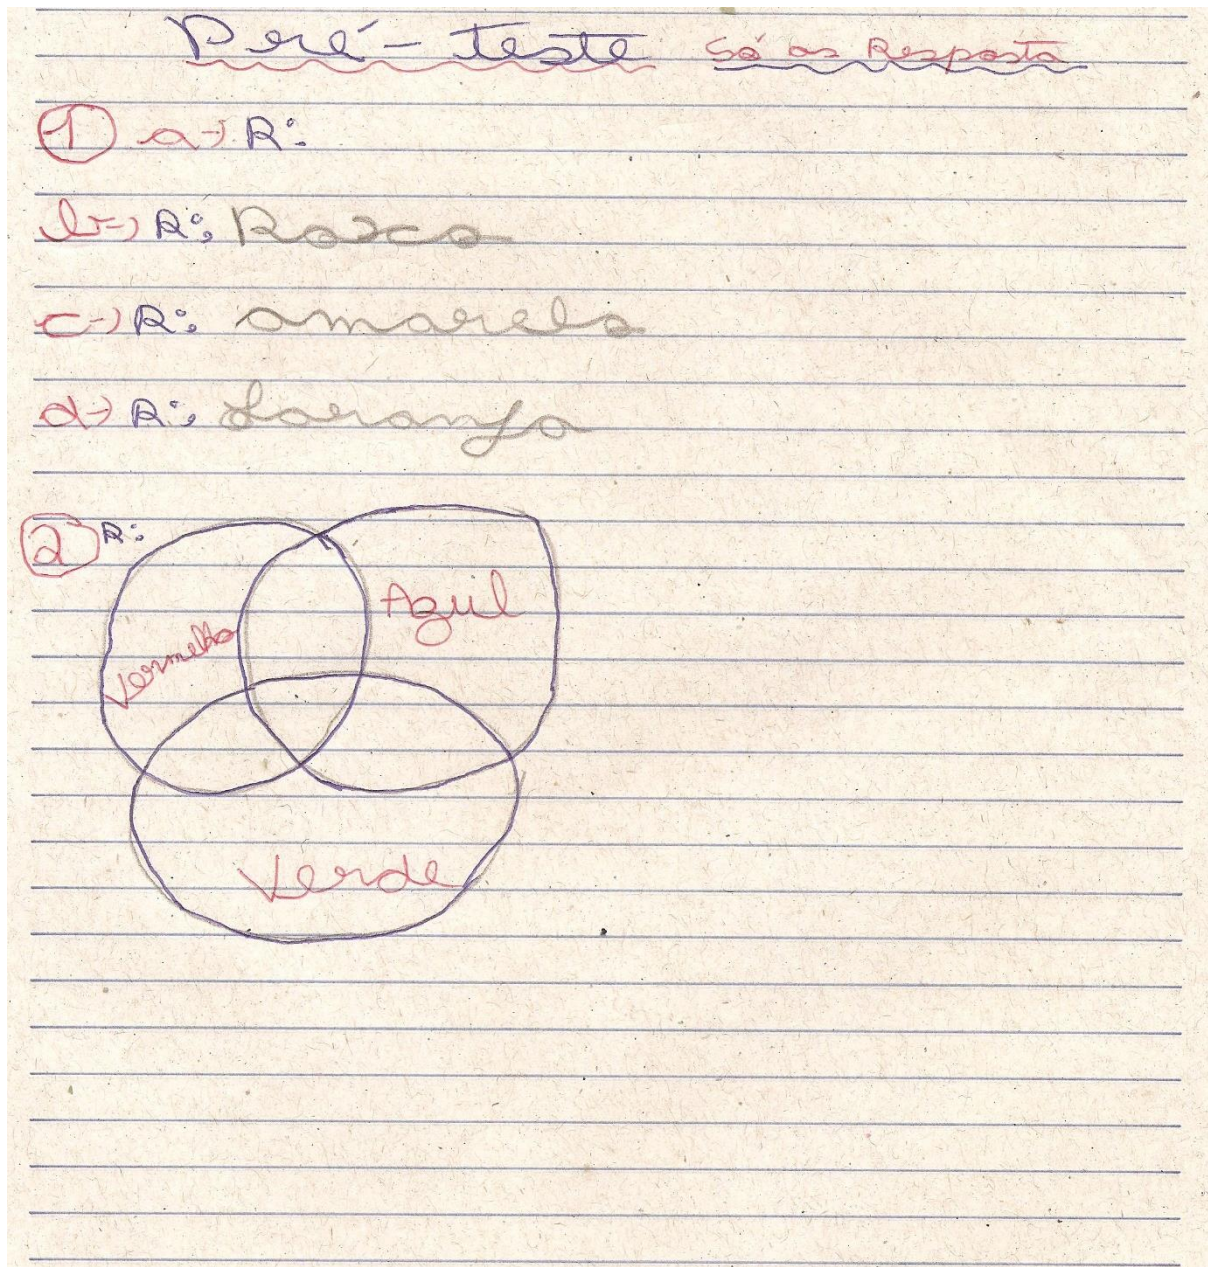 Peré-teste Só as Resposta
1 a-) R:
b-) R: Roxo
c-) R: amarelo
d-) R: Laranja
2 R:
Vermelho
Azul
Verde